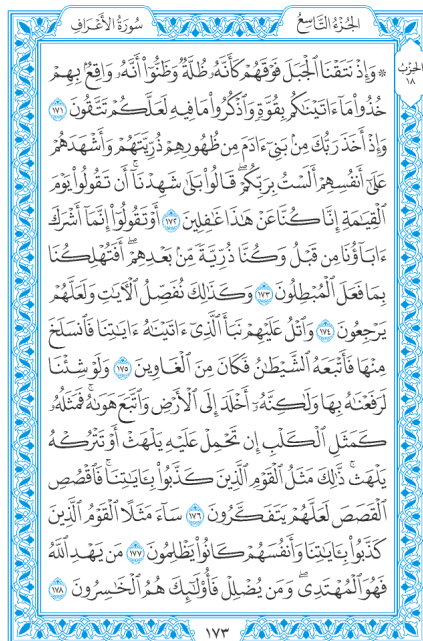 الجُزْءُ التَّاسِعُ
سُورَةُ الأَعْرَافِ
الحِزْبُ
١٨
۞ وَإِذْ نَتَقْنَا ٱلْجَبَلَ فَوْقَهُمْ كَأَنَّهُۥ ظُلَّةٌ وَظَنُّوٓا۟ أَنَّهُۥ وَاقِعٌۢ بِهِمْ
خُذُوا۟ مَآ ءَاتَيْنَـٰكُم بِقُوَّةٍ وَٱذْكُرُوا۟ مَا فِيهِ لَعَلَّكُمْ تَتَّقُونَ ١٧١
وَإِذْ أَخَذَ رَبُّكَ مِنۢ بَنِىٓ ءَادَمَ مِن ظُهُورِهِمْ ذُرِّيَّتَهُمْ وَأَشْهَدَهُمْ
عَلَىٰٓ أَنفُسِهِمْ أَلَسْتُ بِرَبِّكُمْ ۖ قَالُوا۟ بَلَىٰ ۛ شَهِدْنَآ ۛ أَن تَقُولُوا۟ يَوْمَ
ٱلْقِيَـٰمَةِ إِنَّا كُنَّا عَنْ هَـٰذَا غَـٰفِلِينَ ١٧٢ أَوْ تَقُولُوٓا۟ إِنَّمَآ أَشْرَكَ
ءَابَآؤُنَا مِن قَبْلُ وَكُنَّا ذُرِّيَّةً مِّنۢ بَعْدِهِمْ ۖ أَفَتُهْلِكُنَا
بِمَا فَعَلَ ٱلْمُبْطِلُونَ ١٧٣ وَكَذَٰلِكَ نُفَصِّلُ ٱلْـَٔايَـٰتِ وَلَعَلَّهُمْ
يَرْجِعُونَ ١٧٤ وَٱتْلُ عَلَيْهِمْ نَبَأَ ٱلَّذِىٓ ءَاتَيْنَـٰهُ ءَايَـٰتِنَا فَٱنسَلَخَ
مِنْهَا فَأَتْبَعَهُ ٱلشَّيْطَـٰنُ فَكَانَ مِنَ ٱلْغَاوِينَ ١٧٥ وَلَوْ شِئْنَا
لَرَفَعْنَـٰهُ بِهَا وَلَـٰكِنَّهُۥٓ أَخْلَدَ إِلَى ٱلْأَرْضِ وَٱتَّبَعَ هَوَىٰهُ ۚ فَمَثَلُهُۥ
كَمَثَلِ ٱلْكَلْبِ إِن تَحْمِلْ عَلَيْهِ يَلْهَثْ أَوْ تَتْرُكْهُ
يَلْهَث ۚ ذَّٰلِكَ مَثَلُ ٱلْقَوْمِ ٱلَّذِينَ كَذَّبُوا۟ بِـَٔايَـٰتِنَا ۚ فَٱقْصُصِ
ٱلْقَصَصَ لَعَلَّهُمْ يَتَفَكَّرُونَ ١٧٦ سَآءَ مَثَلًا ٱلْقَوْمُ ٱلَّذِينَ
كَذَّبُوا۟ بِـَٔايَـٰتِنَا وَأَنفُسَهُمْ كَانُوا۟ يَظْلِمُونَ ١٧٧ مَن يَهْدِ ٱللَّهُ
فَهُوَ ٱلْمُهْتَدِى ۖ وَمَن يُضْلِلْ فَأُو۟لَـٰٓئِكَ هُمُ ٱلْخَـٰسِرُونَ ١٧٨
١٧٣